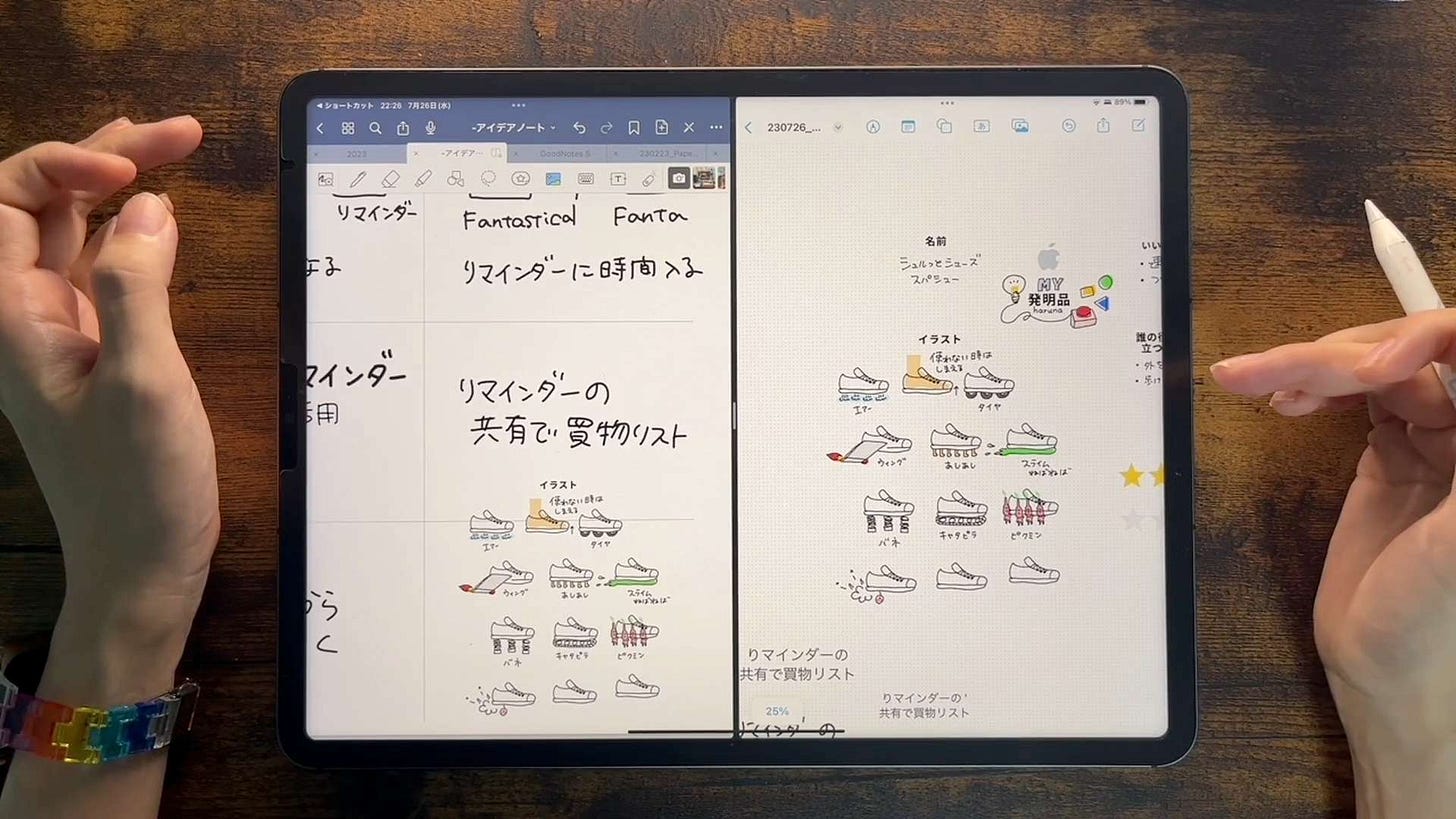 ◀ショートカット 22:26 7月26日(水)
-アイデアノート
2023
-アイデア…
GoodNotes 5
230223_Pape…
T
リマインダー
Fantastical
Fanta
なる
リマインダーに時間入る
マインダー
活用
リマインダーの
共有で買物リスト
イラスト
使わない時は
しまえる
エアー
タイヤ
ウィング
あしあし
スライム
ねばねば
バネ
キャタピラ
ピクミン
から
く
89%
230726_...
あ
名前
シュルっとシューズ
スパシュー
いい
MY
発明品
haruna
イラスト
使わない時は
しまえる
エアー
タイヤ
ウィング
あしあし
スライム
ねばねば
バネ
キャタピラ
ピクミン
誰の役
立つ
りマインダーの
共有で買物リスト
25%
りマインダーの'
共有で買物リスト
リマインダーの